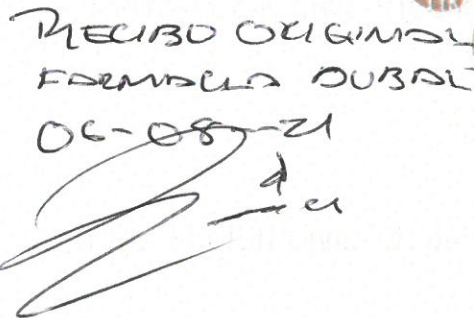 RECIBO ORIGINAL
FARMACIA DUBAL
06-08-21